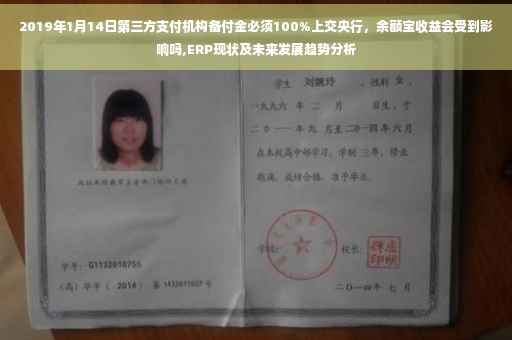 2019年1月14日第三方支付机构备付金必须100%上交央行，余额宝收益会受到影
响吗,ERP现状及未来发展趋势分析
学生 刘婉玲 ，性别 女 ，
一九九六 年 二 月 日生，于
二〇一一年九 月至二〇一四年六月
在本校高中部学习，学制 三年，修业
期满，成绩合格，准予毕业。
学校： 校长：
学号： G1132010755
（高）毕字（ 2014 ）第 1432011007 号
二〇一四年 七 月